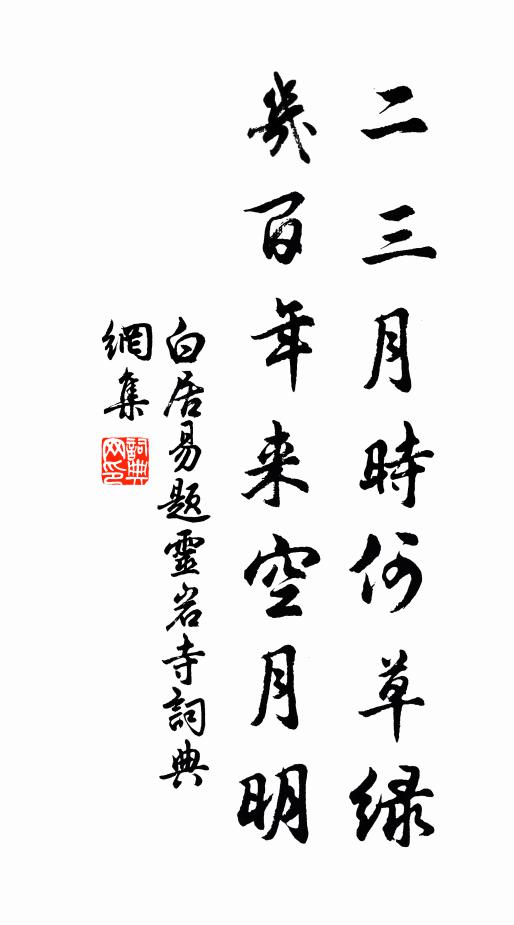 二三月時何草緑
幾百年来空月明
白居易题靈岩寺詞典
網集
詞典
网印